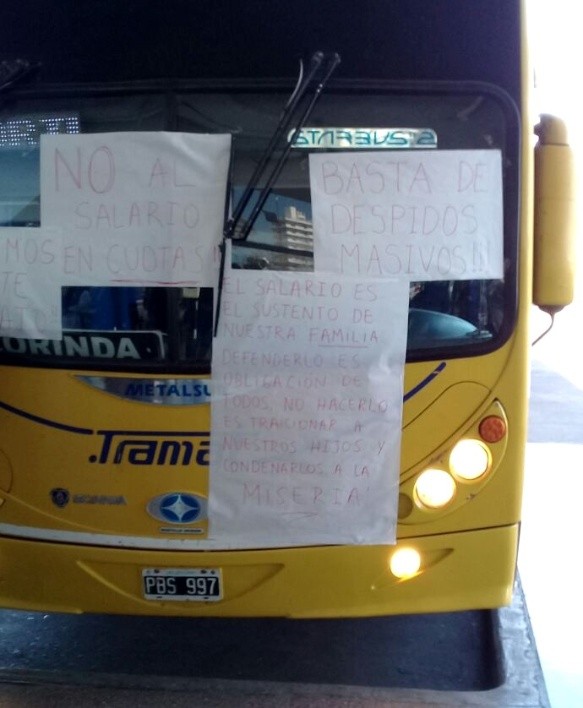 STARBUS 2
NO AL
SALARIO
EN CUOTAS!!
BASTA DE
DESPIDOS
MASIVOS!!!
MOS
TE
EL SALARIO ES
EL SUSTENTO DE
NUESTRA FAMILIA
DEFENDERLO ES
OBLIGACION DE
TODOS, NO HACERLO
ES TRAICIONAR A
NUESTROS HIJOS Y
CONDENARLOS A LA
MISERIA
ORINDA
METALSU
Trama
SCANIA
PBS 997